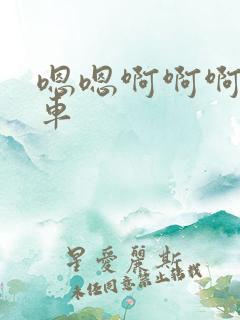 嗯嗯啊啊啊
車
星愛麗斯
未經同意禁止轉載